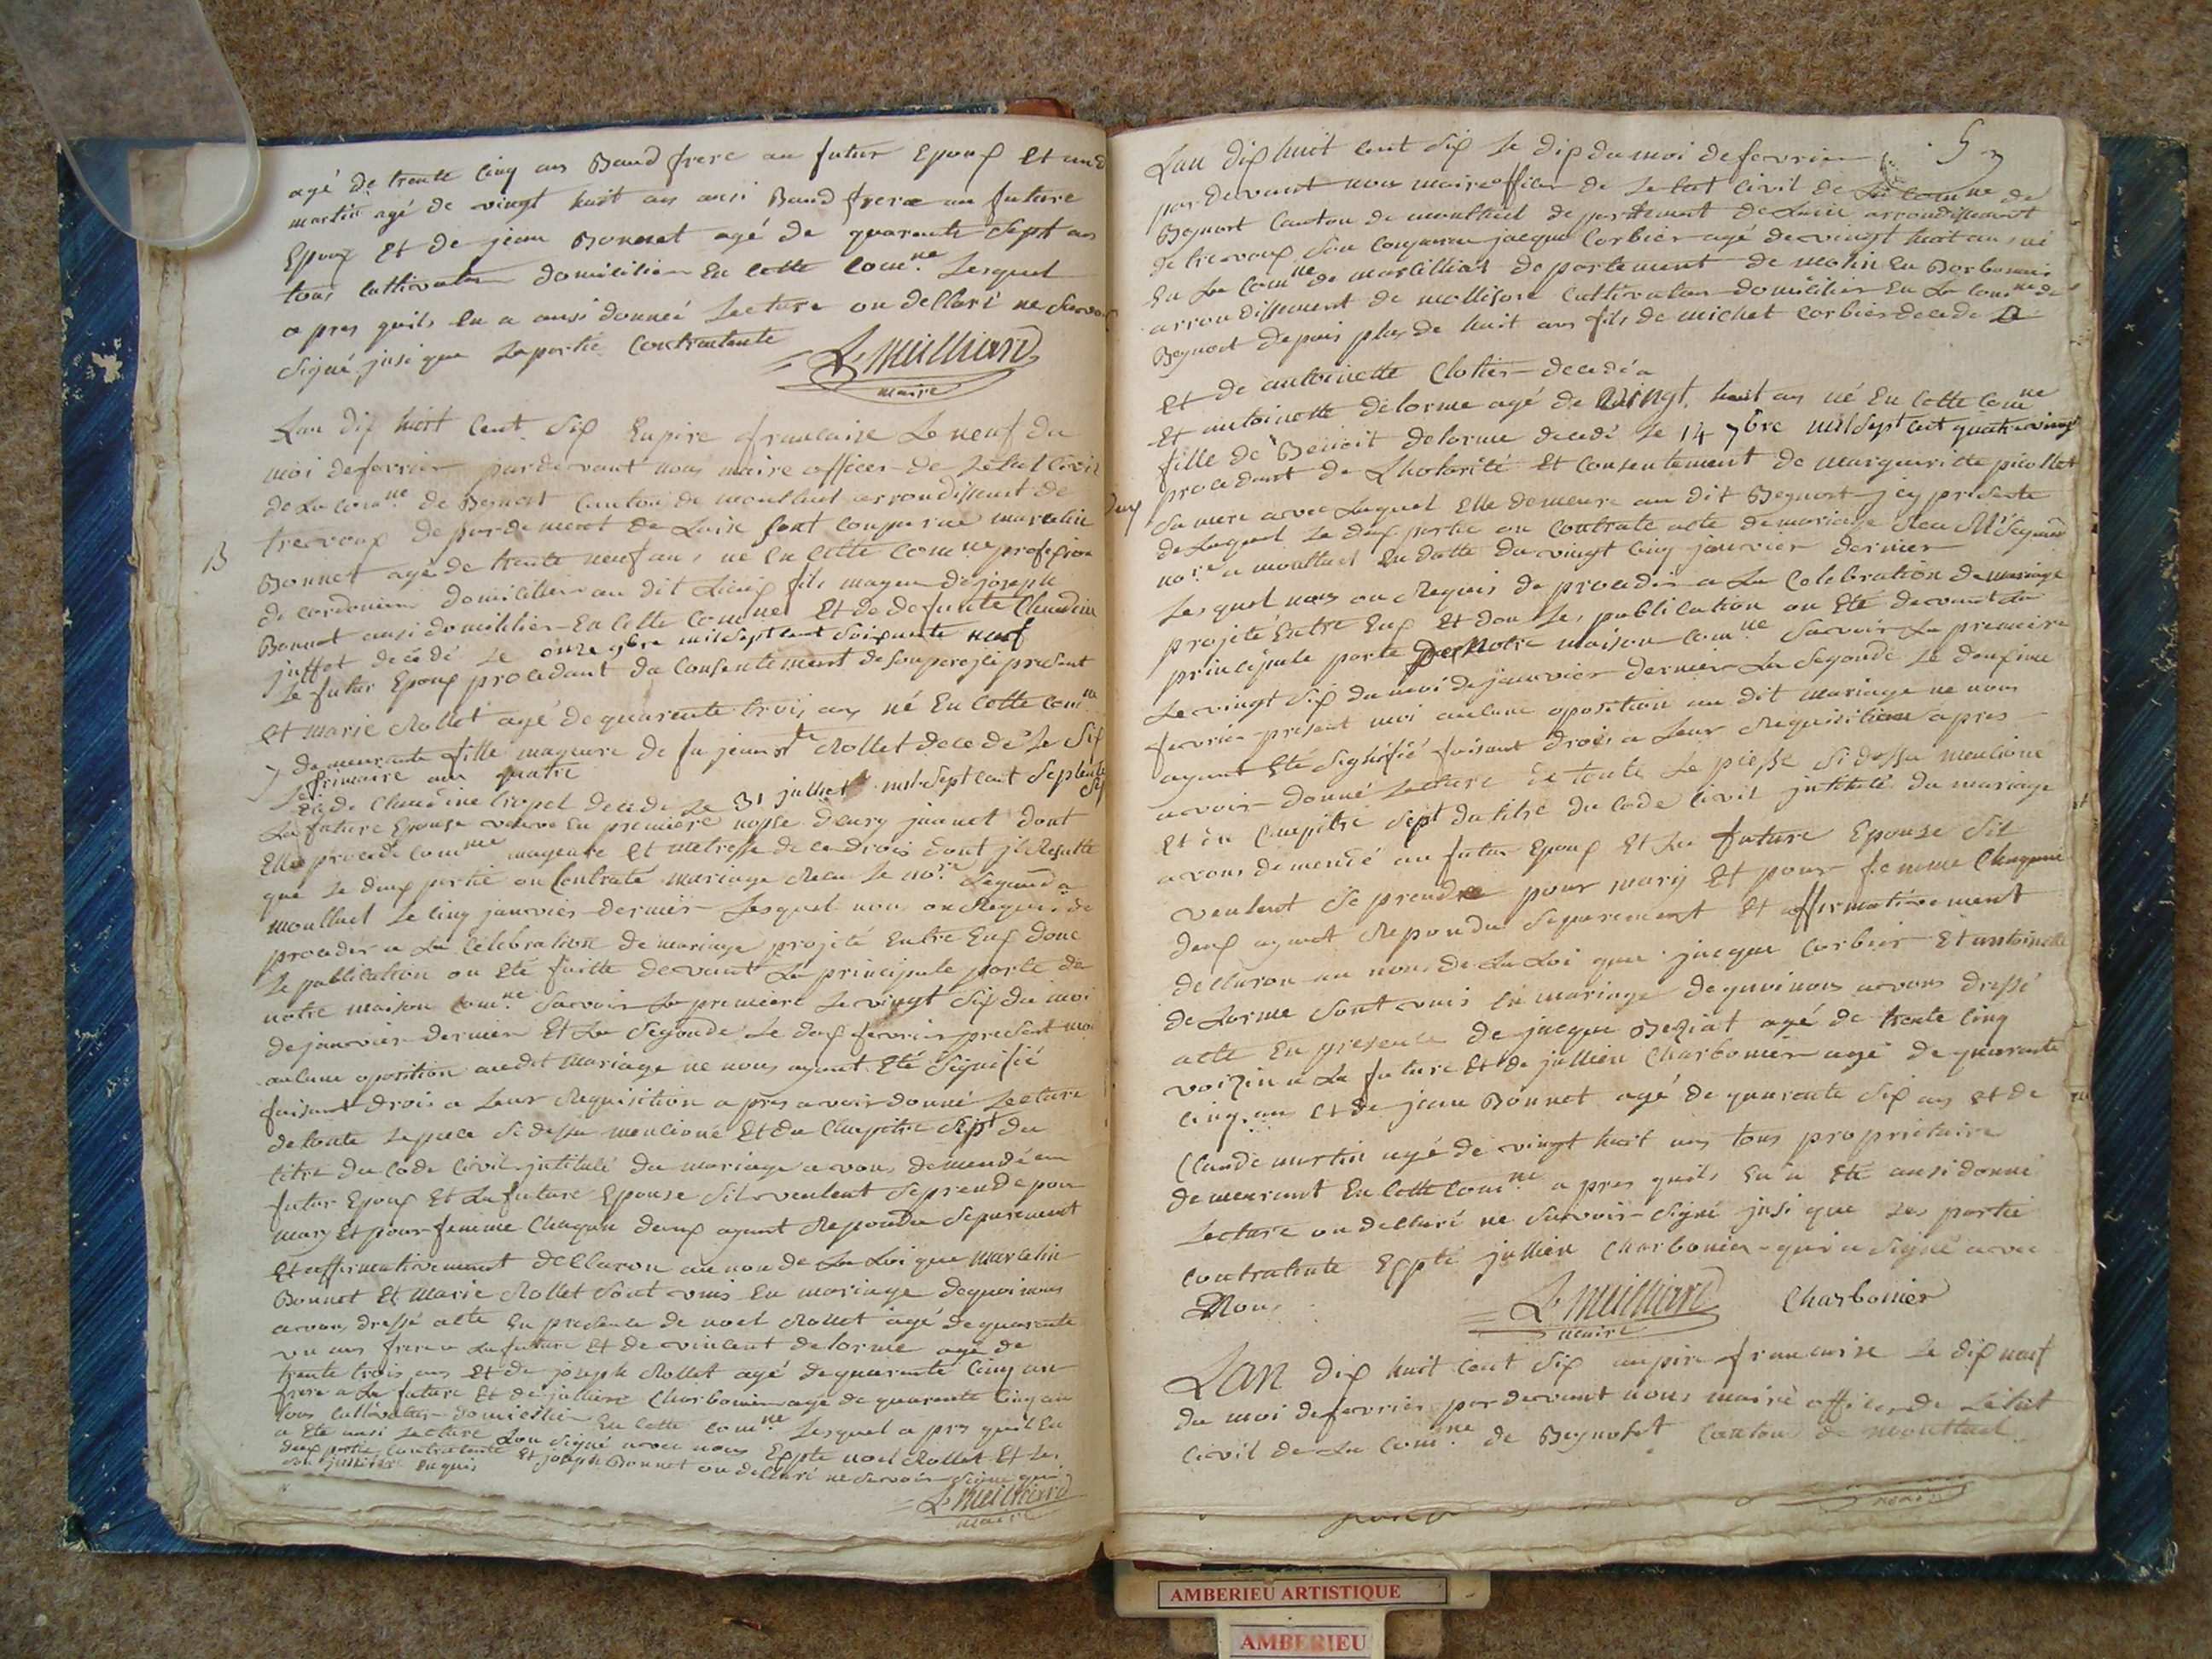 agé de trente cinq ans Baud frere au futur Epoux Et
martin agé de vingt huit ans ausi Baud frere au future
Epoux Et de jean Bonnet agé de quarente Sept ans
tous cultivateur domicilier En cette comne Lesquel
apres quils En a ausi donneé Lecture on dellaré ne Savoir
Signé jnsi que La partié Contractante
L. Meilliard
maire
Lan dix huit Cent Six Enpire francaise Le neuf du
moi de fevrier pardevant nous maire officer de Letat Civil
de La comne de Beynost Canton de montluel arrondissent de
trevoux departement de Lain Sont conparue marcelin
B
Bonnet agé de trente neuf ans né En cette comne profession
de cordonier domicilier au dit Lieux fils mageur de joseph
Bonnet ausi domicilier En cette comne Et de defunte Claudine
juffet decédé Le onze 9bre mil Sept cent Soixante neuf
Le futur Epoux procedant du Consentement de Son pere jci present
Et marie Rollet agé de quarente trois ans né En cette comne
y demeurante fille mageure de fu jean Bte Rollet decedé Le Six
frimaire an quatre
Et de Claudine tropel decede Le 31 julliet mil Sept cent Septente Six
La future Epouse veuve En premiere nopse deury juinet dont
Elle procede comme mageure Et metresse de ce drois dont jl Resulte
que Le deux partié on Contraté mariage Recu Le nore Seguin a
montluel Le cinq janvier dernier Lesquel nous on Requis de
proceder a La Celebration de mariage projeté Entre Eux donc
Le publication on Eté faitte devant La principale porte de
notre maison comne Savoir La premiere Le vingt Six du moi
de janvier dernier Et La Segonde Le deux fevrier present moi
aucune oposition audit mariage ne nous ayant Eté Signifié
faisant drois a Leur Requisition apres avoir donné Lecture
de toute Le piece Si dessu mencioné Et du Chapitre Sept du
titre du Code Civil jntitulé du mariage avons demendé au
futur Epoux Et La future Epouse Sil veulent Se prende pour
mary Et pour femme Chaqun deux ayant Repondu Separement
Et affirmativement dellaron au non de La Loi que marcelin
Bonnet Et Marie Rollet Sont unis En mariage de quoi nous
avons dressé acte En presence de noël Rollet agé de quarente
un ans frere a La future Et de vincent delorme agé de
trente trois ans Et de joseph Rollet agé de quarente Cinq an
frere a La future Et de jullien Charbonier agé de quarente Cinq an
tous cultivateur domicilier En cette comne Lesquel apres quil En
a Eté ausi Lecture Lon Signé avec nous Exepte noel Rollet Et Les
deux partié Contractante Et joseph Bonnet on dellaré ne Savoir Signé
L. Meilliard
maire
5
Lan dix huit cent Six Le dix du moi de fevrier
par devant nous maire officer de Letat Civil de La comne de
Beynost Canton de montluel departement de Lain arrondissement
de trevoux Son conparue jacque Corbier agé de vingt huit ans né
En La comne de marcilliat departement de Molin En Borbonnois
arrondissement de mollison Cultivateur domicilier En La comne de
Beynost depuis plus de huit ans fils de michel Corbier decede Le
Et de antoinette Clotier decedé a
Et antoinette delorme agé de vingt huit ans né En cette comne
fille de Benoit delorme decedé Le 14 7bre mil Sept cent quatrevingt
procedant de Lhotorité Et Consentement de margueritte picollet
Sa mere avec Laquel Elle demeure au dit Beynost jcy presente
de Laquel Le deux partie on Contraté acte de mariage Recu Me Seguin
nore a montluel En datte du vingt cinq janvier dernier
Lesquel nous on Requis de proceder a La Celebration de mariage
projeté Entre Eux Et don Les publication on Eté devant La
principale porte De Notre maison comne Savoir La premiere
Le vingt Six du moi de janvier dernier La Segonde Le deuxime
fevrier present moi aucune oposition au dit mariage ne nous
ayant Eté Signifié faisant drois a Leur Requisition apres
avoir donné Lecture de toute Le piesse Si dessu mencioné
Et du Chapitre Sept du titre du Code Civil jntitulé du mariage
avons demendé au futur Epoux Et La future Epouse Sil
veulent Se prendre pour mary Et pour femme Chaqune
deux ayant Repondu Separement Et affirmativement
dellaron au non de La Loi que jacque Corbier Et antoinette
de Lorme Sont unis En mariage de quoi nous avons dressé
acte En presence de jacque Beziat agé de trente Cinq
voizin a La future Et de jullien Charbonier agé de quarente
cinq ans Et de jean Bonnet agé de quarente Six ans Et de
Claude martin agé de vingt huit ans tous proprietaire
demeurant En cette comne apres quils En a Eté ausi donné
Lecture on dellaré ne Savoir Signé jnsi que Les partié
contratante Exepté jullien Charbonier qui a Signé avec
Nous
L. Meilliard
maire
Charbonier
Lan dix huit cent Six anpire francaise Le dix neuf
du moi de fevrier pardevant nous maire officer de Létat
civil de La comne de Beynost Canton de montluel
maire
AMBERIEU ARTISTIQUE
AMBERIEU